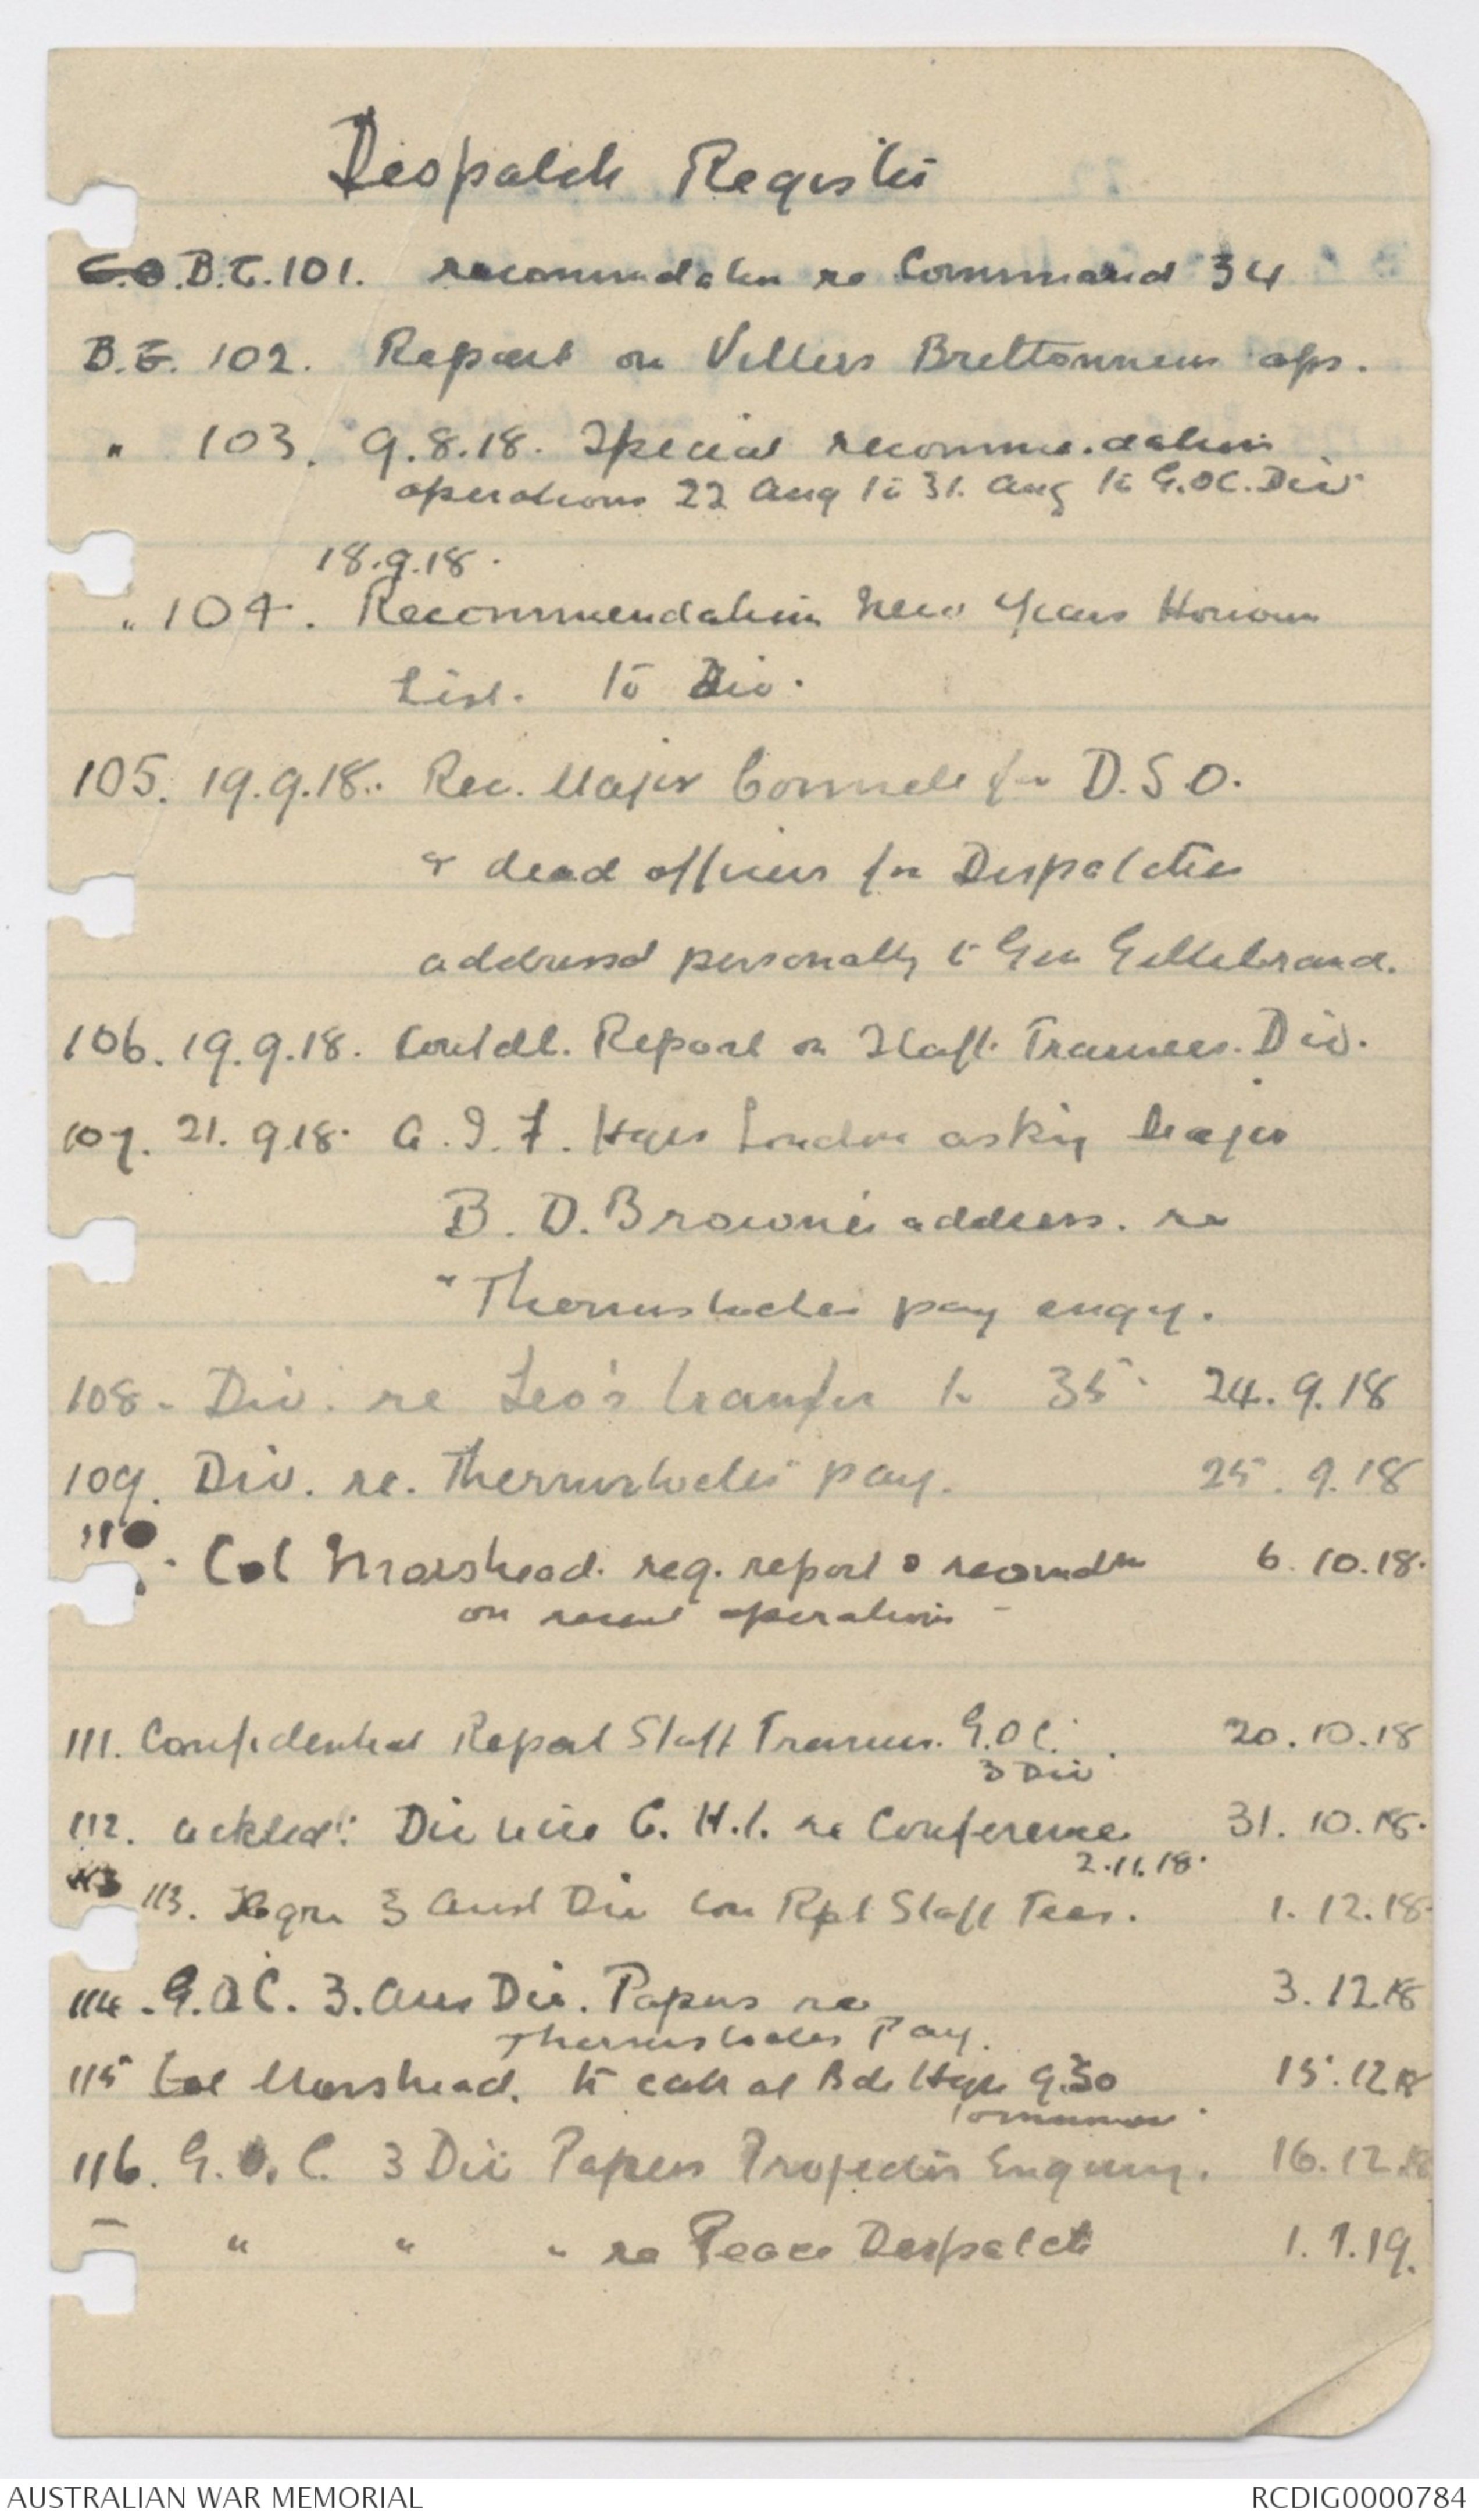 Despatch Register
C.O.B.T.101. recommendatn re Command 34
B.T. 102. Report on Villers Brettonneux ops.
" 103. 9.8.18. Special recommendations
operations 22 Aug to 31. Aug to G.O.C. Div
18.9.18.
" 104. Recommendation New Years Honour
List. to Div.
105. 19.9.18. Rec. Major Connell for D.S.O.
& dead officers for Despatches
addressed personally to Gen Gellibrand.
106. 19.9.18. Confdl. Report on Staff Trainees. Div.
107. 21. 9.18. A.I.F. Hqrs London asking Major
B. D. Browne's address. re
"Themistocles pay enqy.
108. Div. re Leo's transfer to 35 24.9.18
109. Div. re. Themistocles pay. 25.9.18
110. Col Morshead. req. report & recomdtn 6.10.18.
on recent operations -
111. Confidential Report Staff Trainees. G.O.C. 20.10.18
3 Div
112. ackled. Div wire G.H.1. re Conference 31.10.18.
2.11.18.
113 113. Hqrs 3 Aust Div Con Rpt Staff Tees. 1.12.18
114. G.O.C. 3. Aus Div. Papers re 3.12.18
Themistocles Pay.
115 Col Morshead. to call at Bde Hqrs 9.30 15.12.18
tomorrow.
116. G.O.C. 3 Div Papers Enquiry. 16.12.18
— " " " re Peace Despatch 1.1.19.
AUSTRALIAN WAR MEMORIAL RCDIG0000784